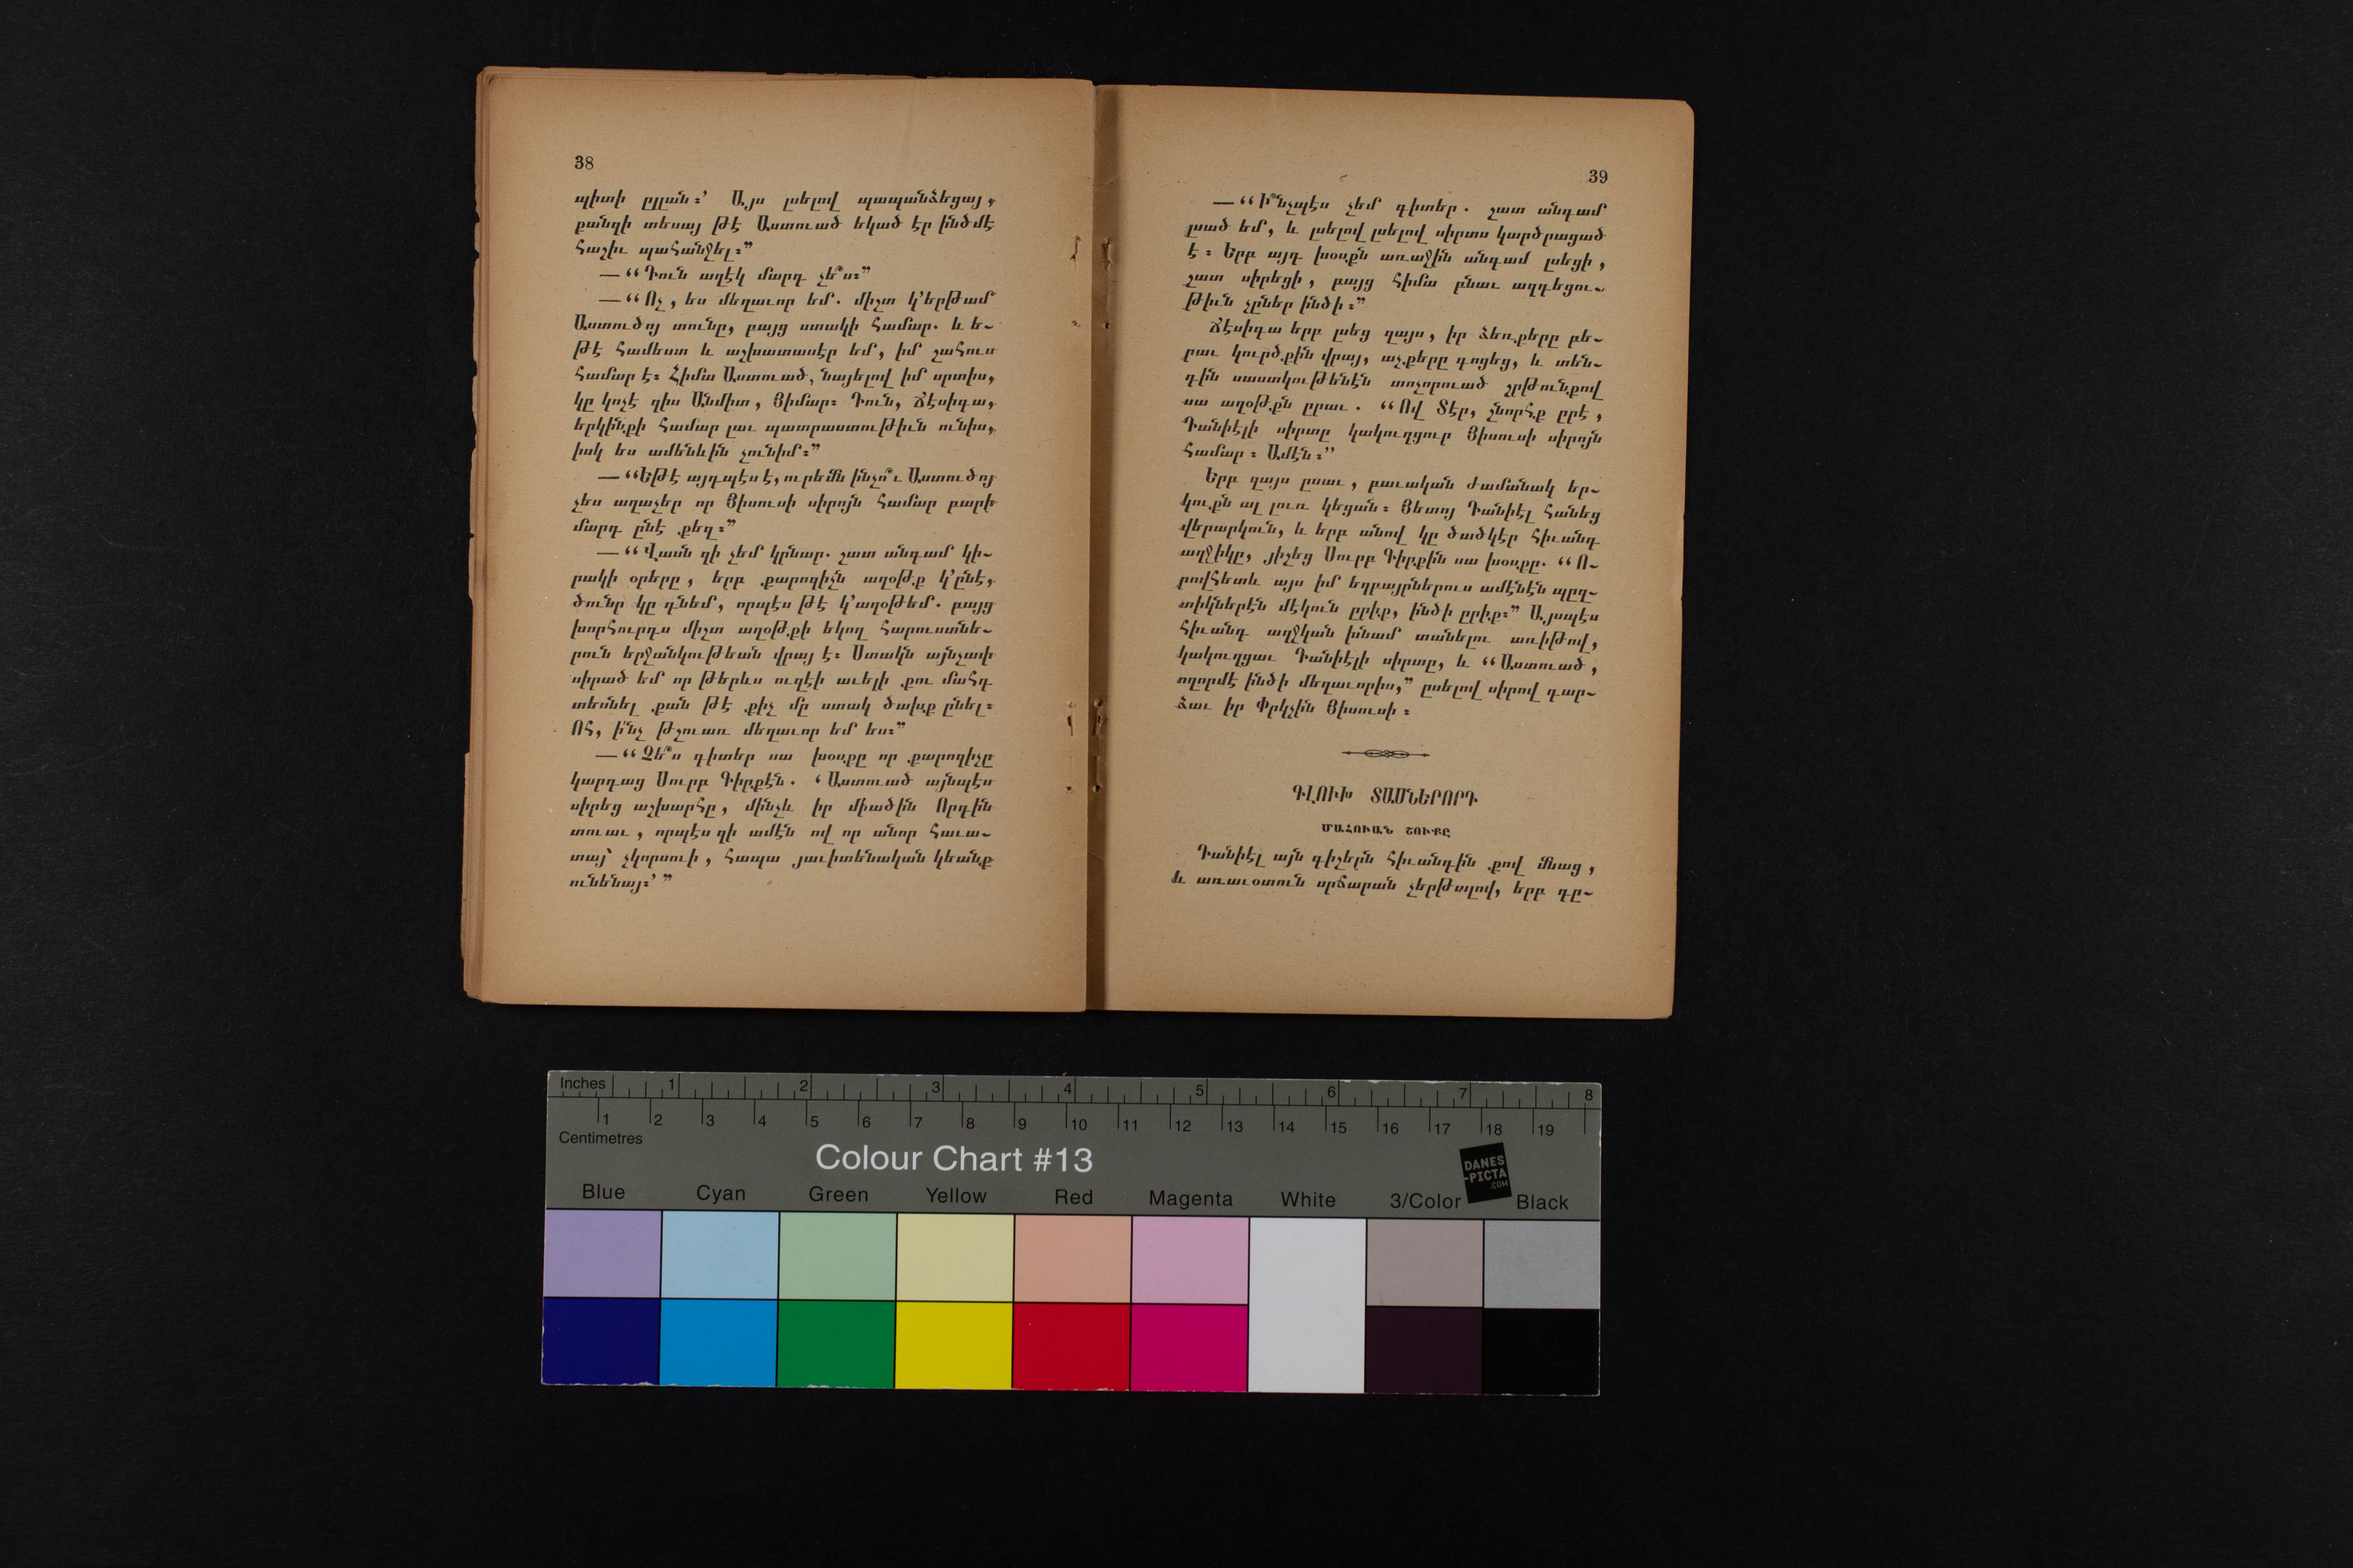 38
պիտի ըլլան։’ Այս ըսելով պապանձեցայ,
քանզի տեսայ թէ Աստուած եկած էր ինծմէ
հաշիւ պահանջել։”
—“Դուն աղէկ մարդ չե՞ս։”
—“Ոչ, ես մեղաւոր եմ. միշտ կ’երթամ
Աստուծոյ տունը, բայց ստակի համար. և ե-
թէ համեստ և աշխատասէր եմ, իմ շահուս
համար է։ Հիմա Աստուած, նայելով իմ սրտիս,
կը կոչէ զիս Անմիտ, Յիմար։ Դուն, Ճէսիգա,
երկինքի համար լաւ պատրաստութիւն ունիս,
իսկ ես ամենևին չունիմ։”
—“Եթէ այդպէս է, ուրեմն ինչո՞ւ Աստուծոյ
չես աղաչեր որ Յիսուսի սիրոյն համար բարի
մարդ ընէ քեզ։”
—“Վասն զի չեմ կրնար. շատ անգամ կի-
րակի օրերը, երբ քարոզիչն աղօթք կ’ընէ,
ծունր կը դնեմ, որպէս թէ կ’աղօթեմ. բայց
խորհուրդս միշտ աղօթքի եկող հարուստնե-
րուն երջանկութեան վրայ է։ Ստակն այնչափ
սիրած եմ որ թերևս ուզէի աւելի քու մահդ
տեսնել քան թէ քիչ մը ստակ ծախք ընել։
Ոհ, ի՜նչ թշուառ մեղաւոր եմ ես։”
—“Չե՞ս գիտեր սա խօսքը որ քարոզիչը
կարդաց Սուրբ Գիրքէն. ‘Աստուած այնպէս
սիրեց աշխարհը, մինչև իր միածին Որդին
տուաւ, որպէս զի ամէն ով որ անոր հաւա-
տայ՝ չկորսուի, հապա յաւիտենական կեանք
ունենայ։’”
39
—“Ի՞նչպէս չեմ գիտեր. շատ անգամ
լսած եմ, և լսելով լսելով սիրտս կարծրացած
է։ Երբ այդ խօսքն առաջին անգամ լսեցի,
շատ սիրեցի, բայց հիմա բնաւ ազդեցու-
թիւն չըներ ինծի։”
Ճէսիգա երբ լսեց զայս, իր ձեռքերը բե-
րաւ կուրծքին վրայ, աչքերը գոցեց, և տեն-
դին սաստկութենէն տոչորուած շրթունքով
սա աղօթքն ըրաւ. “Ով Տէր, շնորհք ըրէ,
Դանիէլի սիրտը կակուղցուր Յիսուսի սիրոյն
համար։ Ամէն։”
Երբ զայս ըսաւ, բաւական ժամանակ եր-
կուքն ալ լուռ կեցան։ Յետոյ Դանիէլ հանեց
վերարկուն, և երբ անով կը ծածկէր հիւանդ
աղջիկը, յիշեց Սուրբ Գիրքին սա խօսքը. “Ո-
րովհետև այս իմ եղբայրներուս ամէնէն պըզ-
տիկներէն մէկուն ըրիք, ինծի ըրիք։” Այսպէս
հիւանդ աղջկան խնամ տանելու առիթով,
կակուղցաւ Դանիէլի սիրտը, և “Աստուած,
ողորմէ ինծի մեղաւորիս,” ըսելով սիրով դար-
ձաւ իր Փրկչին Յիսուսի։
ԳԼՈՒԽ ՏԱՍՆԵՐՈՐԴ
ՄԱՀՈՒԱՆ ՇՈՒՔԸ
Դանիէլ այն գիշերն հիւանդին քով մնաց,
և առաւօտուն սրճարան չերթալով, երբ դը-
Inches 1 2 3 4 5 6 7 8
1 2 3 4 5 6 7 8 9 10 11 12 13 14 15 16 17 18 19
Centimetres
Colour Chart #13
DANES
-PICTA
.COM
Blue Cyan Green Yellow Red Magenta White 3/Color Black